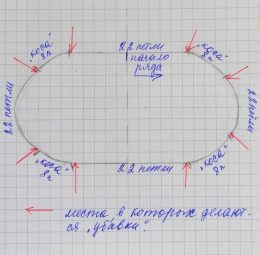 "коса"
8п
22 петли
начало
ряда
"коса"
8п
22 петли
22 петли
"коса"
8п
22 петли
"коса"
8п
места в которых делают-
ся "убавки".